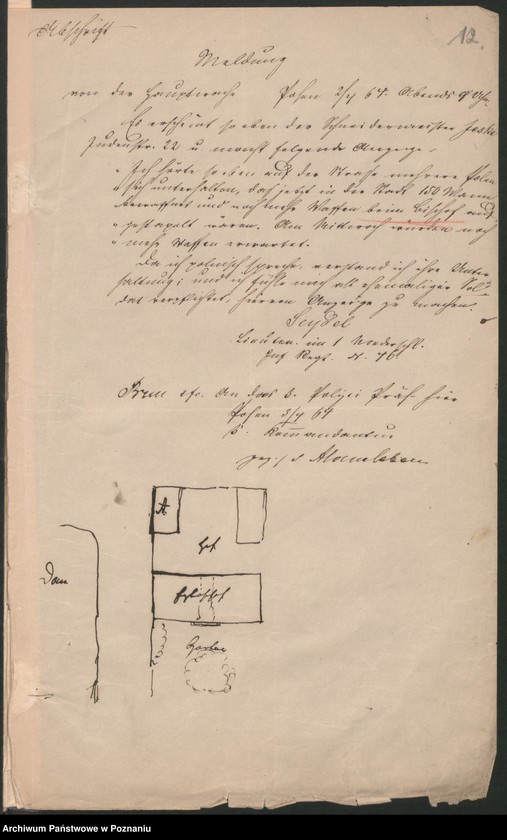 Abschrift
12.
Meldung
von der Hauptwache Posen 2/4 64. Abends 9 Uhr.
Es erscheint so eben der Schneidermeister
Judenstr. 22 u. macht folgende Anzeige.
„Ich hörte so eben auf der Straße mehrere Polen
„sich unterhalten, daß jetzt in der Stadt 150 Mann
bewaffnet und noch mehr Waffen beim Bischof auf-
„gestapelt wären. Am Mittwoch würden noch
„mehr Waffen erwartet.
Da ich polnisch spreche, verstand ich ihre Unter-
haltung; und ich fühle mich als ehemaliger Sol-
dat verpflichtet, hiervon Anzeige zu machen.
Seydel
Lieuten. im 1 Niederschl.
Inf Regt. N. 46
An das k. Polizei Präs. hier
Posen 3/4 64
k. Kommandantur
gez.
A
Hof
Dom
Garten
Archiwum Państwowe w Poznaniu